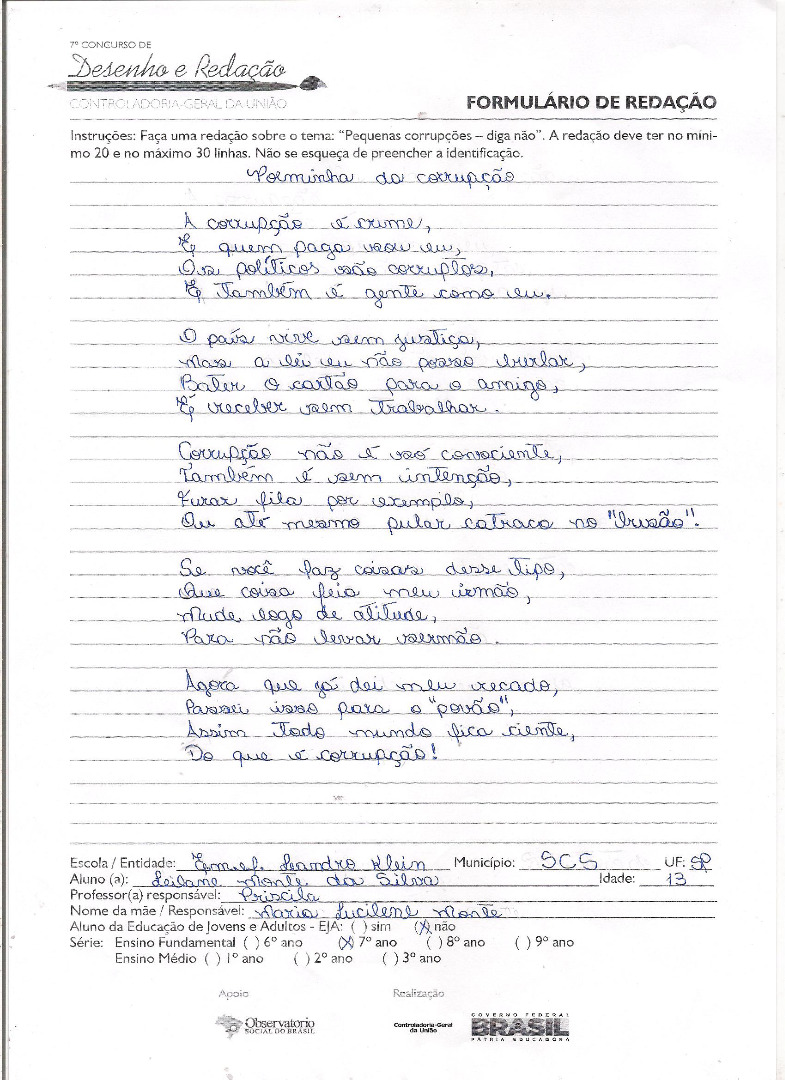 7º CONCURSO DE
Desenho e Redação
CONTROLADORIA-GERAL DA UNIÃO
FORMULÁRIO DE REDAÇÃO
Instruções: Faça uma redação sobre o tema: "Pequenas corrupções – diga não". A redação deve ter no míni-
mo 20 e no máximo 30 linhas. Não se esqueça de preencher a identificação.
Poeminha da corrupção
A corrupção é crime,
E quem paga sou eu,
Os políticos são corruptos,
E também é gente como eu.
O país vive sem justiça,
Mas a lei eu não posso burlar,
Bater o cartão para o amigo,
É receber sem trabalhar.
Corrupção não é só consciente,
Também é sem intenção,
Furar fila por exemplo,
Ou até mesmo pular catraca no "busão".
Se você faz coisas desse tipo,
Que coisa feia meu irmão,
Mude logo de atitude,
Para não levar sermão.
Agora que já dei meu recado,
Passei isso para o "povão",
Assim todo mundo fica ciente,
Do que é corrupção!
Escola / Entidade: E.m.e.f. Leandro Klein Município: SCS UF: SP
Aluno (a): Leilane Monte da Silva Idade: 13
Professor(a) responsável: Priscila
Nome da mãe / Responsável: Maria Lucilene Monte
Aluno da Educação de Jovens e Adultos - EJA: ( ) sim (X) não
Série: Ensino Fundamental ( ) 6º ano (X) 7º ano ( ) 8º ano ( ) 9º ano
Ensino Médio ( ) 1º ano ( ) 2º ano ( ) 3º ano
Apoio Realização
Observatório
SOCIAL DO BRASIL
Controladoria-Geral
da União
GOVERNO FEDERAL
BRASIL
PÁTRIA EDUCADORA